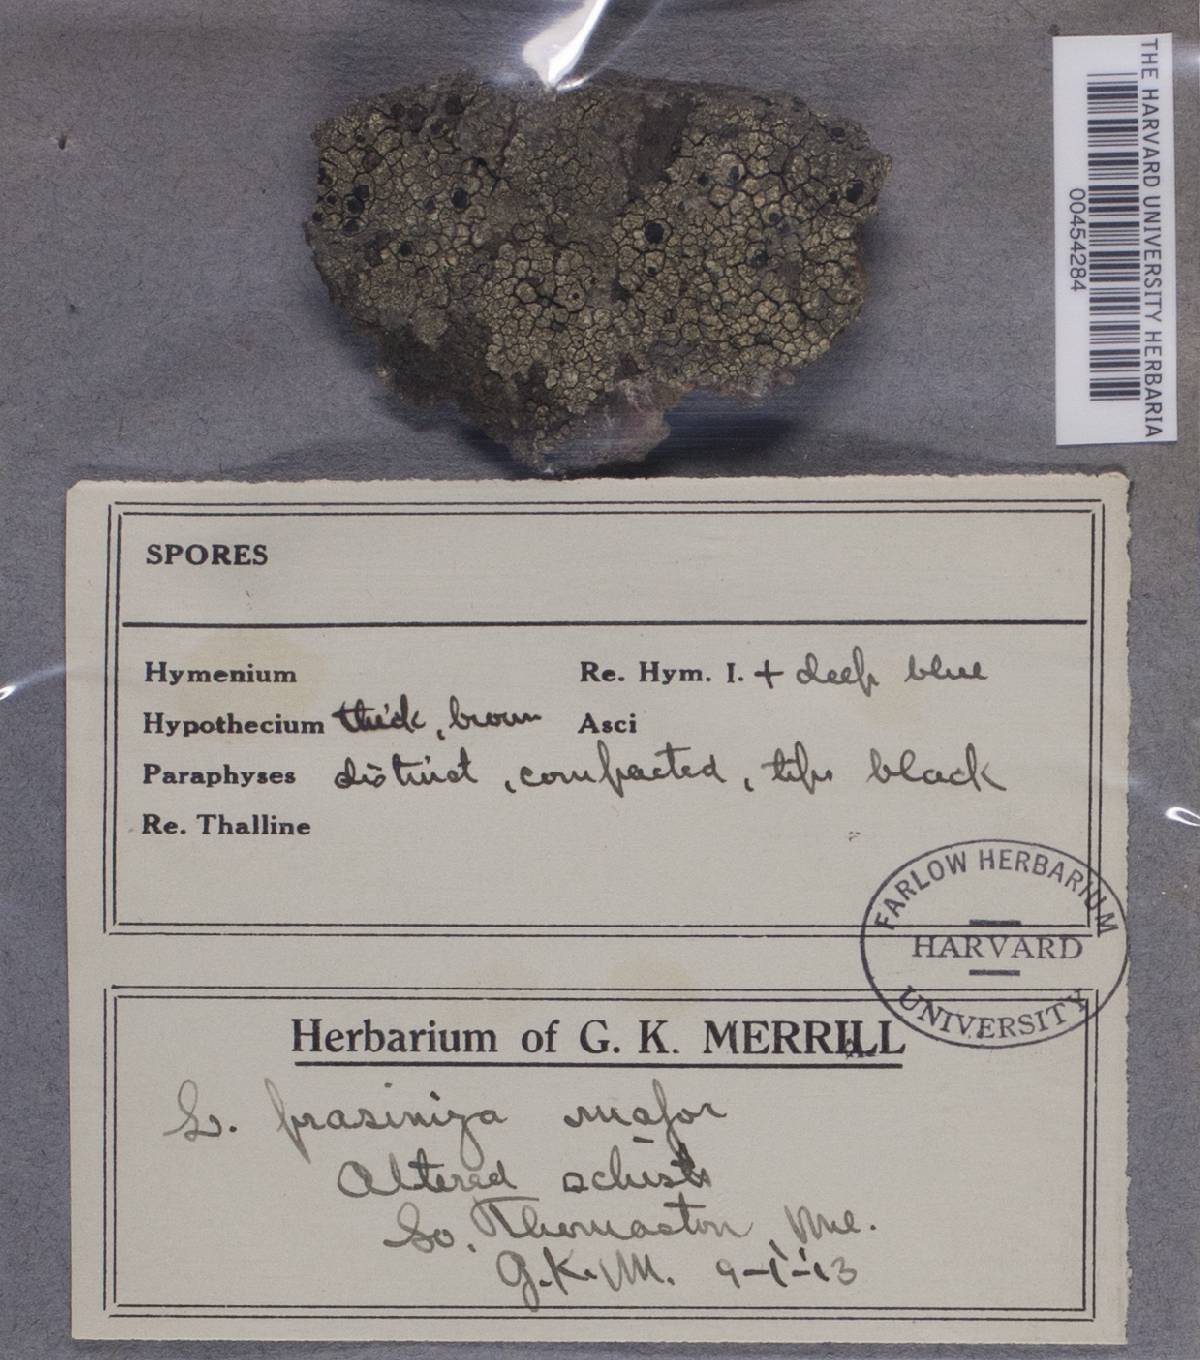 THE HARVARD UNIVERSITY HERBARIA
00454284
SPORES
Hymenium Re. Hym. I. + deep blue
Hypothecium thick, brown Asci
Paraphyses distinct, compacted, tips black
Re. Thalline
FARLOW HERBARIUM
HARVARD
UNIVERSITY
Herbarium of G. K. MERRILL
L. prasiniza major
Altered schists
So. Thomaston, Me.
G.K.M. 9-1-13